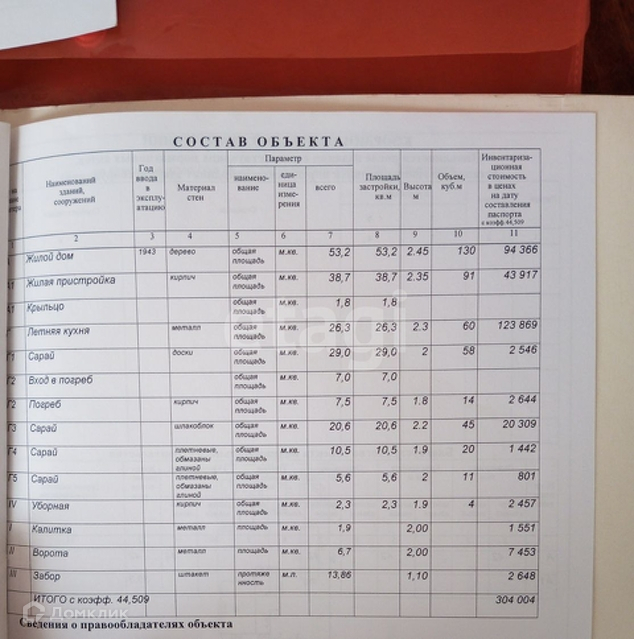 СОСТАВ ОБЪЕКТА
Наименований зданий, сооружений | Год ввода в эксплуатацию | Материал стен | Параметр | Площадь застройки, кв.м | Высота м | Объем, куб.м | Инвентаризационная стоимость в ценах на дату составления паспорта с коэфф 44,509
наименование | единица измерения | всего
2 3 4 5 6 7 8 9 10 11
Жилой дом 1943 дерево общая площадь м.кв. 53,2 53,2 2.45 130 94 366
Жилая пристройка кирпич общая площадь м.кв. 38,7 38,7 2.35 91 43 917
Крыльцо общая площадь м.кв. 1,8 1,8
Летняя кухня металл общая площадь м.кв. 26,3 26,3 2.3 60 123 869
Сарай доски общая площадь м.кв. 29,0 29,0 2 58 2 546
Г2 Вход в погреб общая площадь м.кв. 7,0 7,0
Г2 Погреб кирпич общая площадь м.кв. 7,5 7,5 1.8 14 2 644
Г3 Сарай шлакоблок общая площадь м.кв. 20,6 20,6 2.2 45 20 309
Г4 Сарай плетневые, обмазаны глиной общая площадь м.кв. 10,5 10,5 1.9 20 1 442
Г5 Сарай плетневые, обмазаны глиной общая площадь м.кв. 5,6 5,6 2 11 801
IV Уборная кирпич общая площадь м.кв. 2,3 2,3 1.9 4 2 457
I Калитка металл площадь м.кв. 1,9 2,00 1 551
II Ворота металл площадь м.кв. 6,7 2,00 7 453
III Забор штакет протяженность м.п. 13,86 1,10 2 648
ИТОГО с коэфф. 44,509 304 004
Сведения о правообладателях объекта
Домклик
etagi